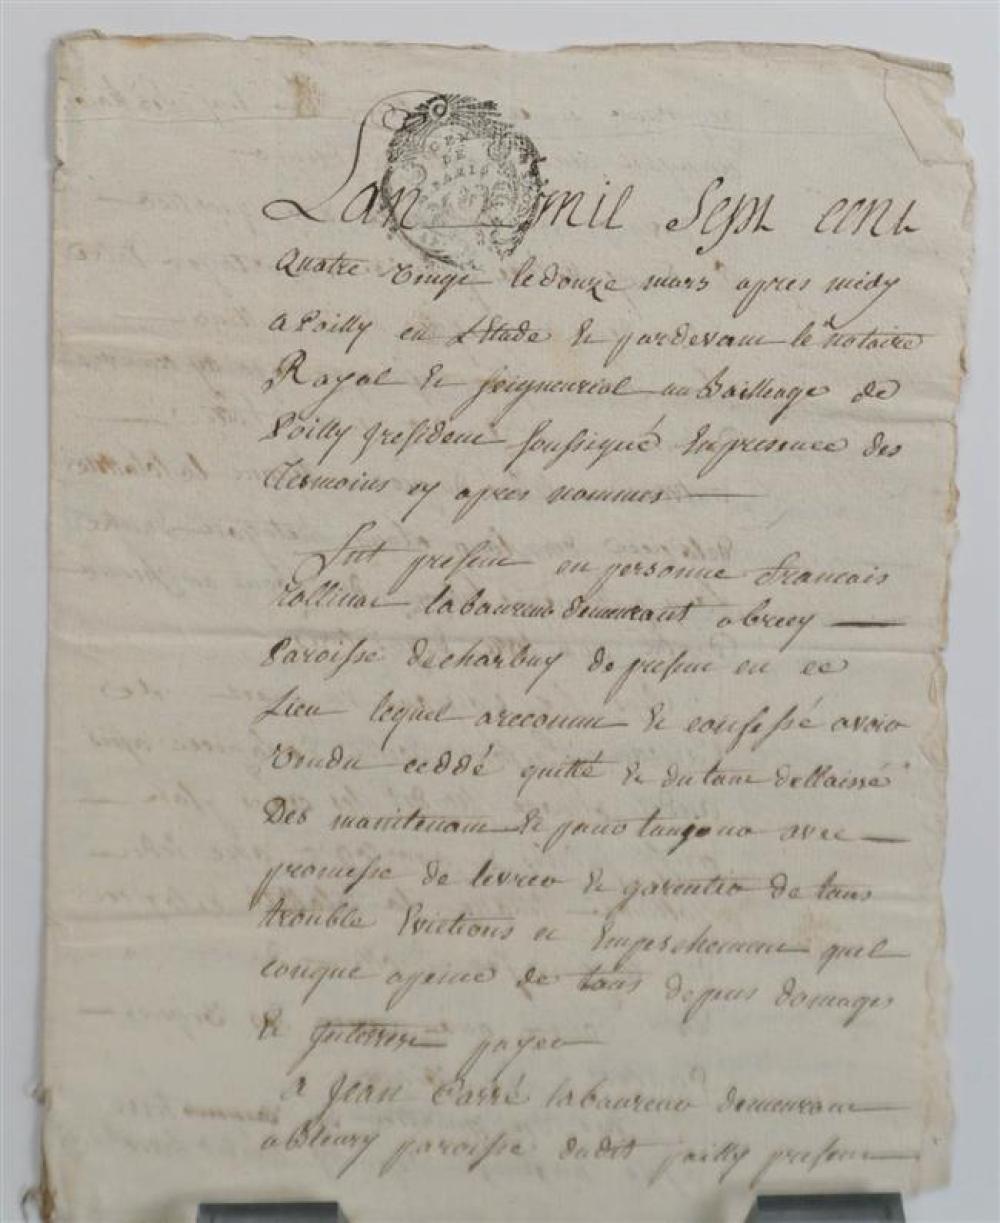 GEN
DE
PARIS
Lan mil Sept cent
quatre vingt le douze mars apres midy
a Poilly en L'Etude & pardevant le notaire
Royal & seigneurial au Bailliage de
Poilly y residant soussigné En presence des
tesmoins cy apres nommes
fut present en personne francois
laboureur demeurant a brecy
Paroisse de charbuy de present en ce
Lieu lequel a reconnu & confessé avoir
vendu ceddé quitté & du tout dellaissé
Des maintenant & pour toujours avec
promesse de livrer & garentir de tous
trouble Evictions et Empeschement quel
conque a peine de tous depens domages
& Interrest payer
a Jean Carré laboureur demeurant
a Bleury paroisse dudit poilly present